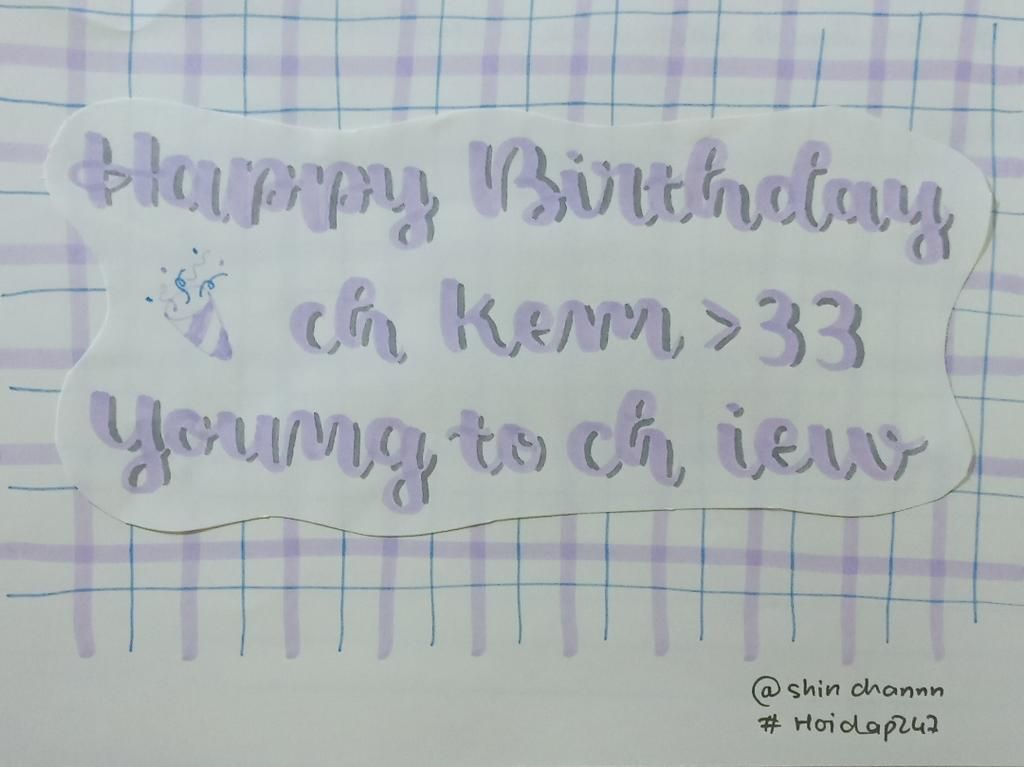 Happy Birthday
ch Kem >33
Young to ch iew
@shin channn
# Hoidap247